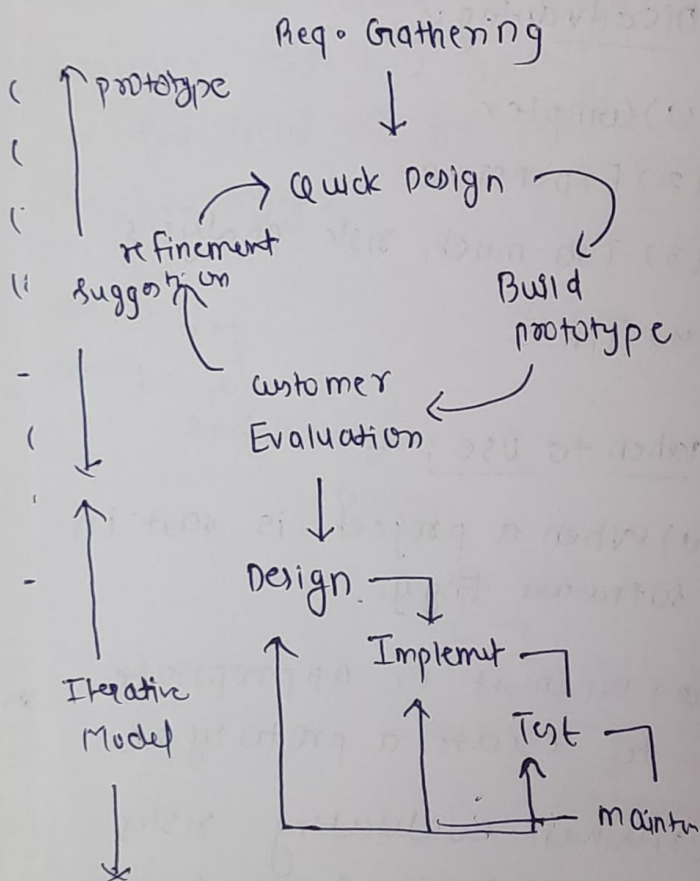 Req. Gathering
prototype
Quick Design
refinement
suggestion
Build
prototype
customer
Evaluation
Design
Implemnt
Iterative
Model
Test